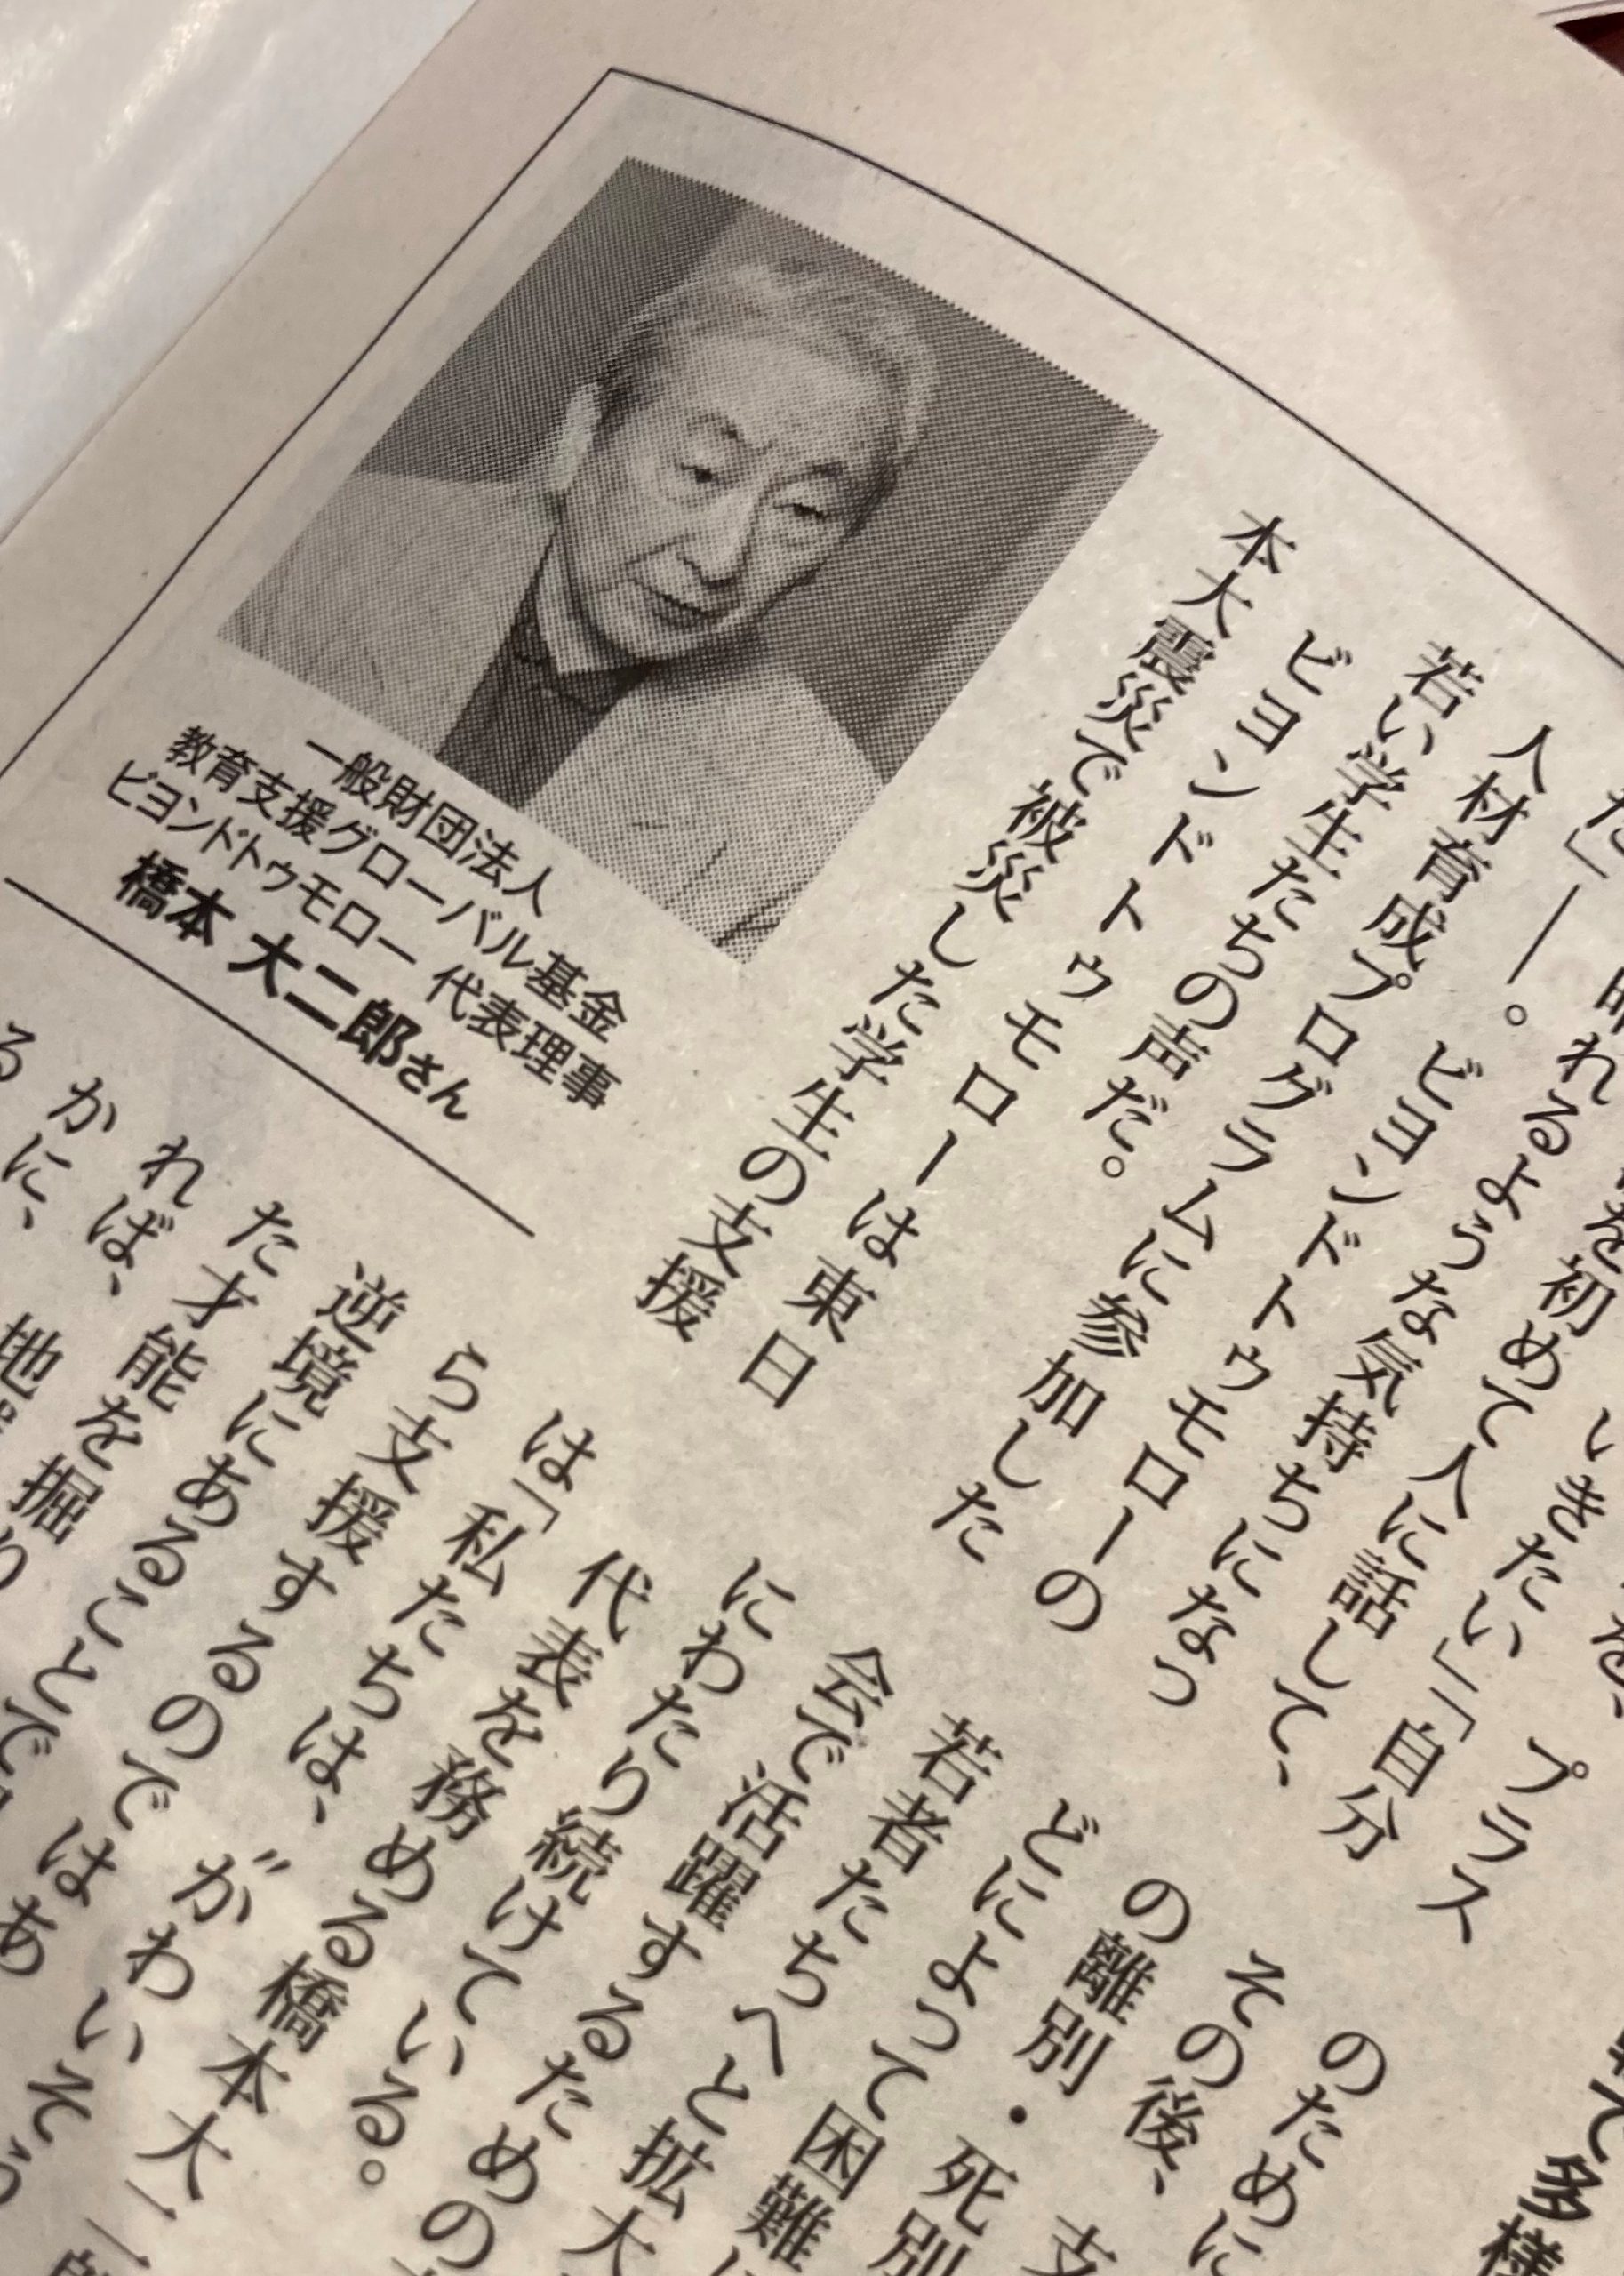 一般財団法人
教育支援グローバル基金
ビヨンドトゥモロー 代表理事
橋本 大二郎さん
を初めて人に話して、
晴れるような気持ちになっ
た」――。ビヨンドトゥモローの
人材育成プログラムに参加した
若い学生たちの声だ。
ビヨンドトゥモローは東日
本大震災で被災した学生の支援
のために
その後、支
の離別・死別
どによって困難に
若者たちへと拡大
会で活躍するための
にわたり続けている。
代表を務める橋本大二郎
は「私たちは、“かわいそう
ら支援するのではあ
逆境にあることで
た才能を掘り
れば、地
かに、
る
いきたい」「自分
プラス
多様